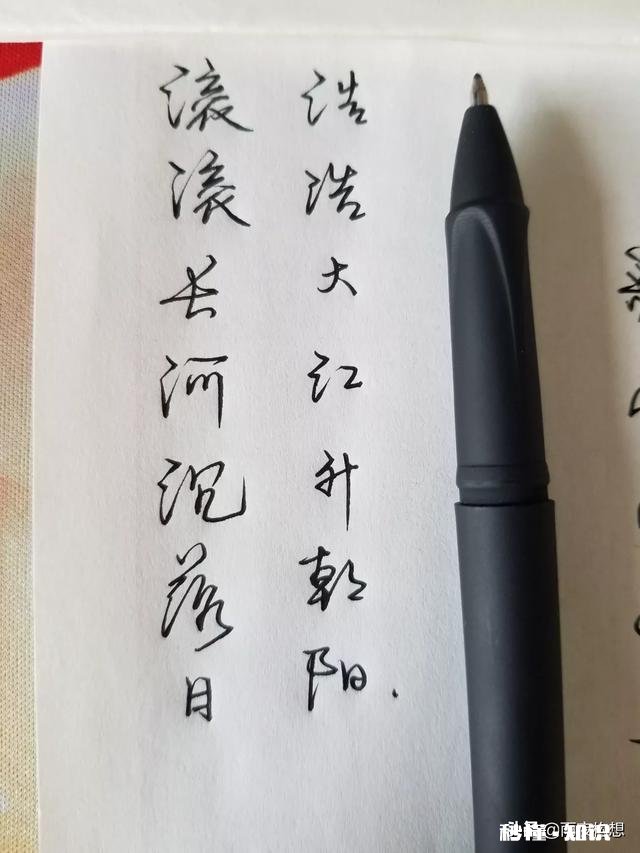 滚滚长河沉落日
浩浩大江升朝阳.
秒懂·知识